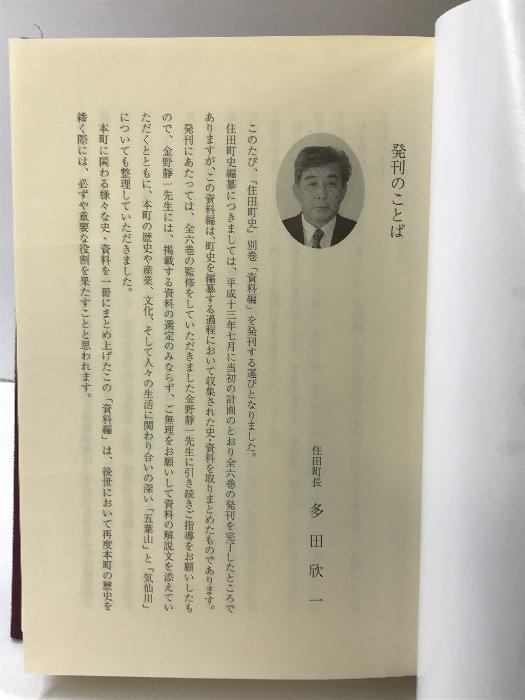 発刊のことば
住田町長 多田欣一
このたび、『住田町史』別巻「資料編」を発刊する運びとなりました。
住田町史編纂につきましては、平成十三年七月に当初の計画のとおり全六巻の発刊を完了したところで
ありますが、この資料編は、町史を編纂する過程において収集された史・資料を取りまとめたものであります。
発刊にあたっては、全六巻の監修をしていただきました金野靜一先生に引き続きご指導をお願いしたも
ので、金野靜一先生には、掲載する資料の選定のみならず、ご無理をお願いして資料の解説文を添えてい
ただくとともに、本町の歴史や産業、文化、そして人々の生活に関わり合いの深い「五葉山」と「気仙川」
についても整理していただきました。
本町に関わる様々な史・資料を一冊にまとめ上げたこの「資料編」は、後世において再度本町の歴史を
繙く際には、必ずや重要な役割を果たすことと思われます。